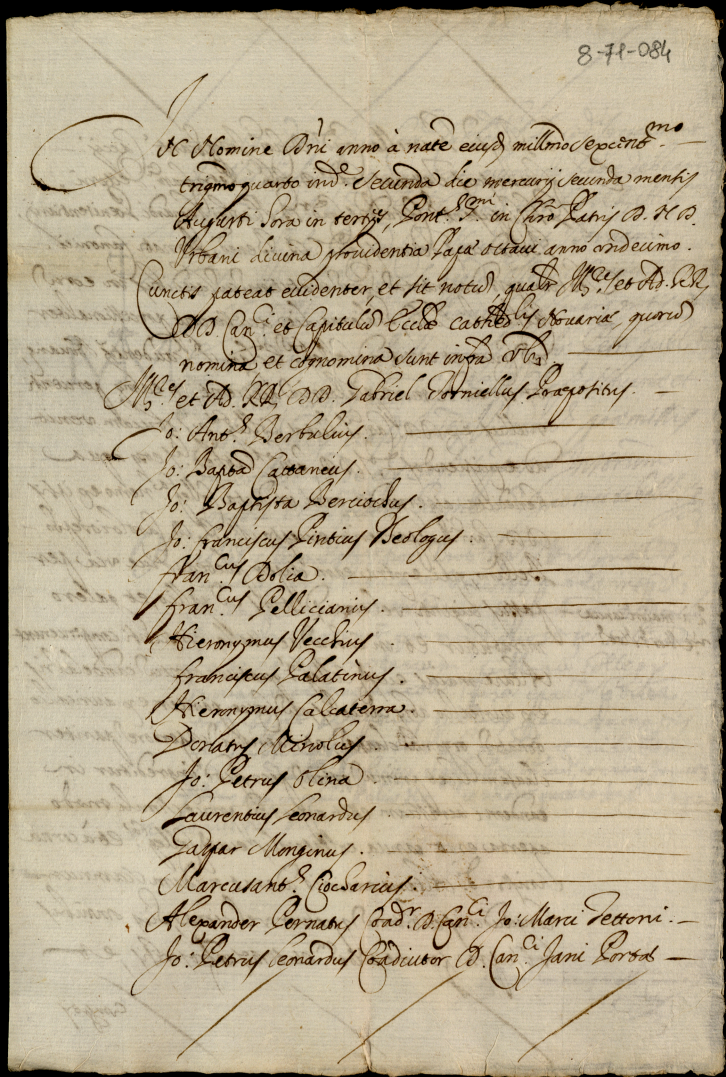 8-71-084
IN Nomine Dñi anno à natē eiusd millmo sexcentmo
trigmo quarto indē. secunda die mercurij secunda mensis
Augusti hora in tertijs, Pont. in Chro Patris D. N. D.
Urbani divina providentia Papæ octavi anno undecimo.
Cunctis pateat evidenter, et sit notũ, qualr M.res et Ad. RR.
DD Can.ci et Capitulũ Eccliæ cathedlis Novariæ, quorũ
nomina et cognomina sunt infra
M.res et Ad. RR. DD. Gabriel Torniellus Præpositus.
Jo: Ant.s Berbulius.
Jo: Bapta Cattaneus.
Jo: Baptista Berciochus.
Jo: Franciscus Pintius Theologus.
Fran.cus Dolia.
Fran.cus Pellicianus.
Hieronymus Vecchius
Franciscus Palatinus.
Hieronymus Calcaterra.
Donatus Miriolus
Jo: Petrus Olina
Laurentius Leonardus
Gaspar Monginus.
Marcusant.s Ciocharius.
Alexander Pernatus Coadr D. Can.ci Jo: Marci Tettoni.
Jo: Petrus Leonardus Coadiutor D. Can.ci Jani Porta